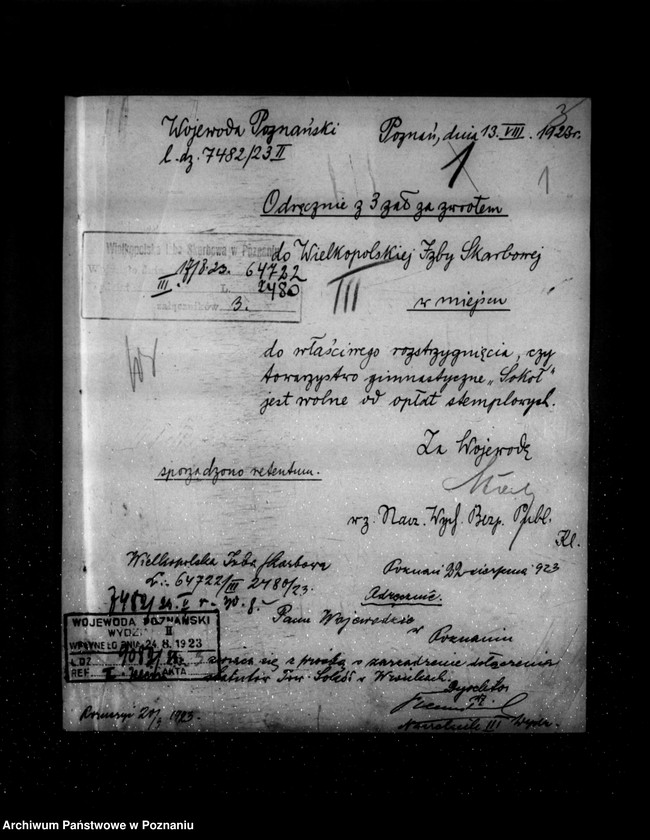 Wojewoda Poznański
l. dz. 7482/23 II
Poznań, dnia 13. VIII. 1923 r.
1
1
Odręcznie z 3 zał za zwrotem
do Wielkopolskiej Izby Skarbowej
w miejscu
Wielkopolska Izba Skarbowa w Poznaniu
17/8.23. 64722
III. 2480
załączników 3.
III
do właściwego rozstrzygnięcia, czy
towarzystwo gimnastyczne „Sokół"
jest wolne od opłat stemplowych.
Za Wojewodę
sporządzono retentum.
wz. Nacz. Wydz. Bezp. Publ.
Kl.
Wielkopolska Izba Skarbowa
L: 64722/III 2480/23.
Poznań 22 sierpnia 923
Odręcznie.
Panu Wojewodzie
w Poznaniu
WOJEWODA POZNAŃSKI
WYDZ. II
WPŁYNĘŁO DNIA 24. 8. 1923
L.DZ.
REF. AKTA
zwraca się z prośbą o zarządzenie dołączenia
statutów Tow. Sokół
Dyrektor
Naczelnik III Wydz.
1923.
Archiwum Państwowe w Poznaniu